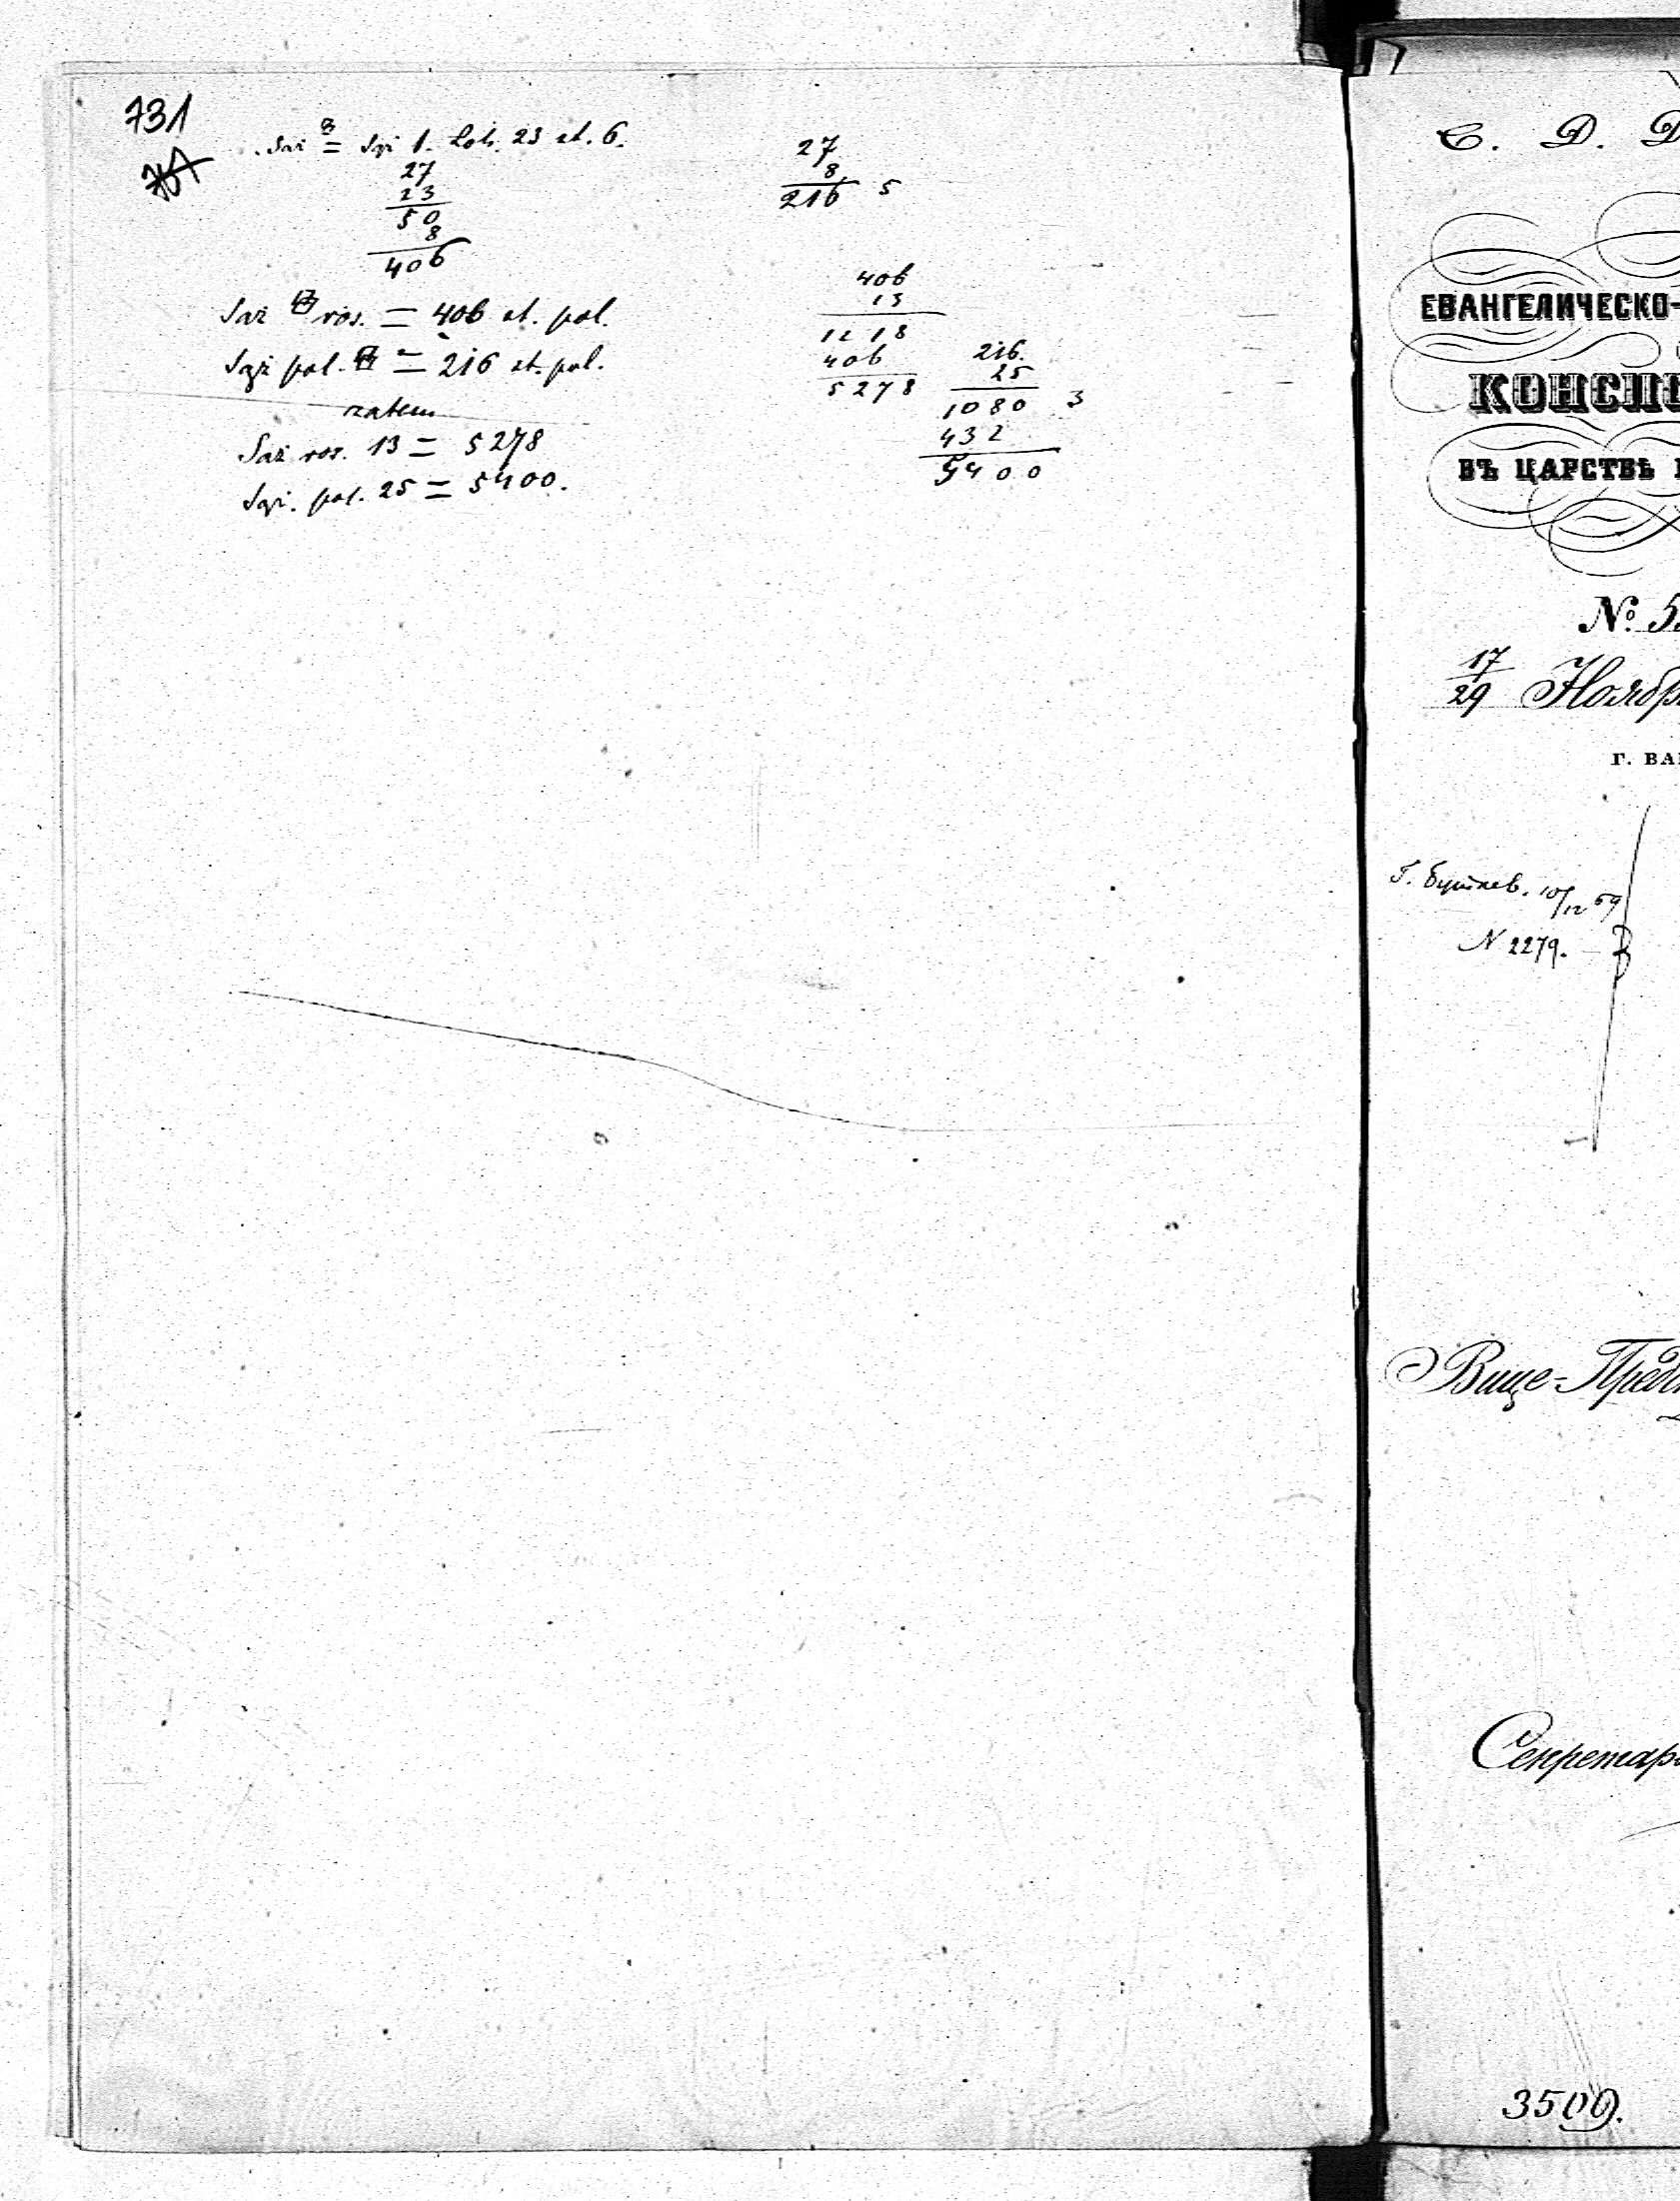 731
Saż = Sąż 1. Łok. 23 st. 6.
27
23
50
8
406
Saż ros. = 406 st. pol.
Sąż pol. = 216 st. pol.
zatem
Saż ros. 13 = 5278
Sąż. pol. 25 = 5400.
27
8
216 5
406
13
1218
406
5278
216.
25
1080 3
432
5400
С. Д. Д
ЕВАНГЕЛИЧЕСКО-
КОНСИ
ВЪ ЦАРСТВѢ
№ 5
17/29 Ноябр
Г. ВА
10/12 69
N 2279.
Вице-Пред
Секретар
3509.